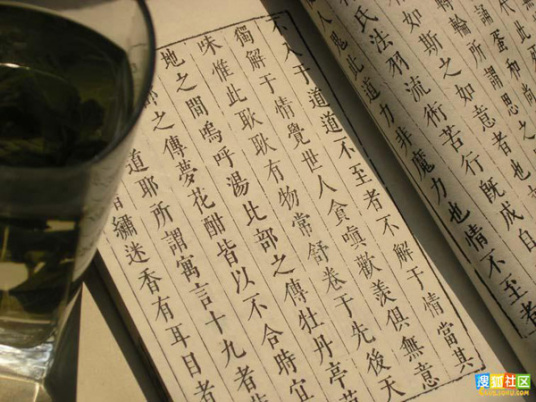 氏法羽流術苦行既成自
人鬼此道力非魔力也情不至者
不入于道道不至者不解于情當其
獨解于情覺世人貪嗔歡羨俱無意
味惟此耿耿有物常舒卷于先後天
地之間嗚呼湯比部之傳牡丹亭范
部之傳夢花酣皆以不合時宜
道耶所謂寓言十九者
繡迷香有耳目者
搜狐社区